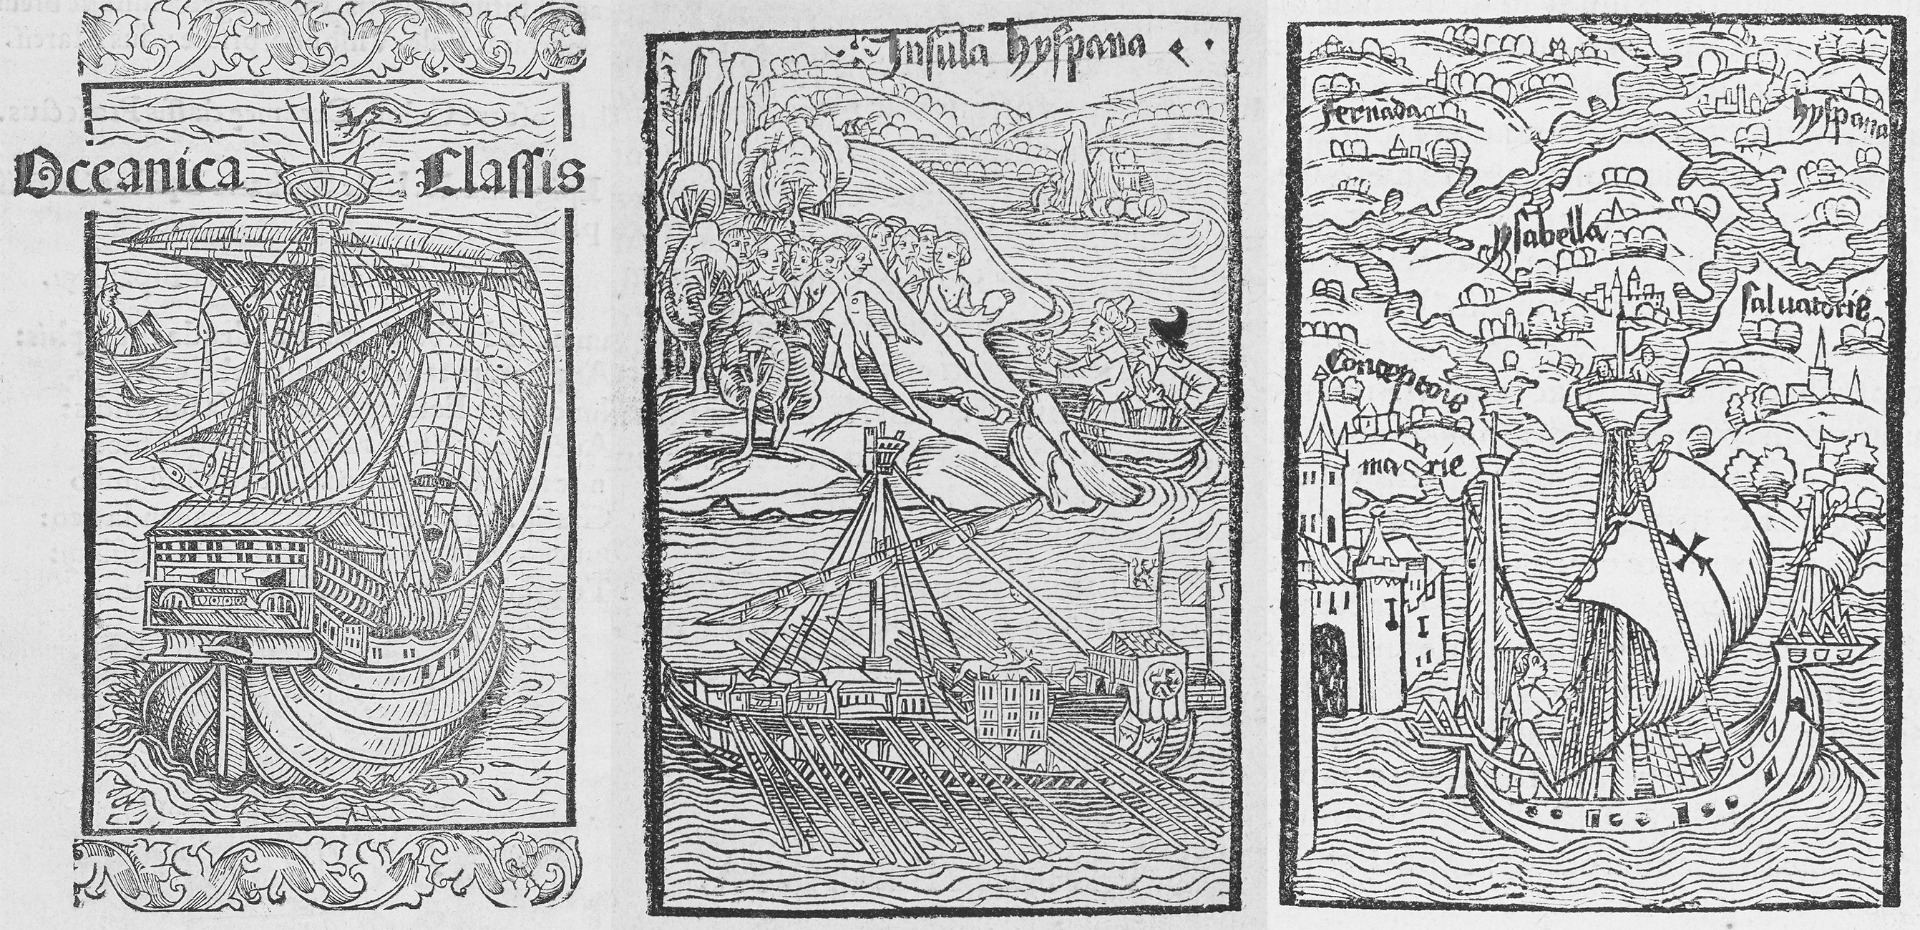 Oceanica Classis
Insula hyspana
fernãda
hyspana
ysabella
saluatorie
Conceptois
marie